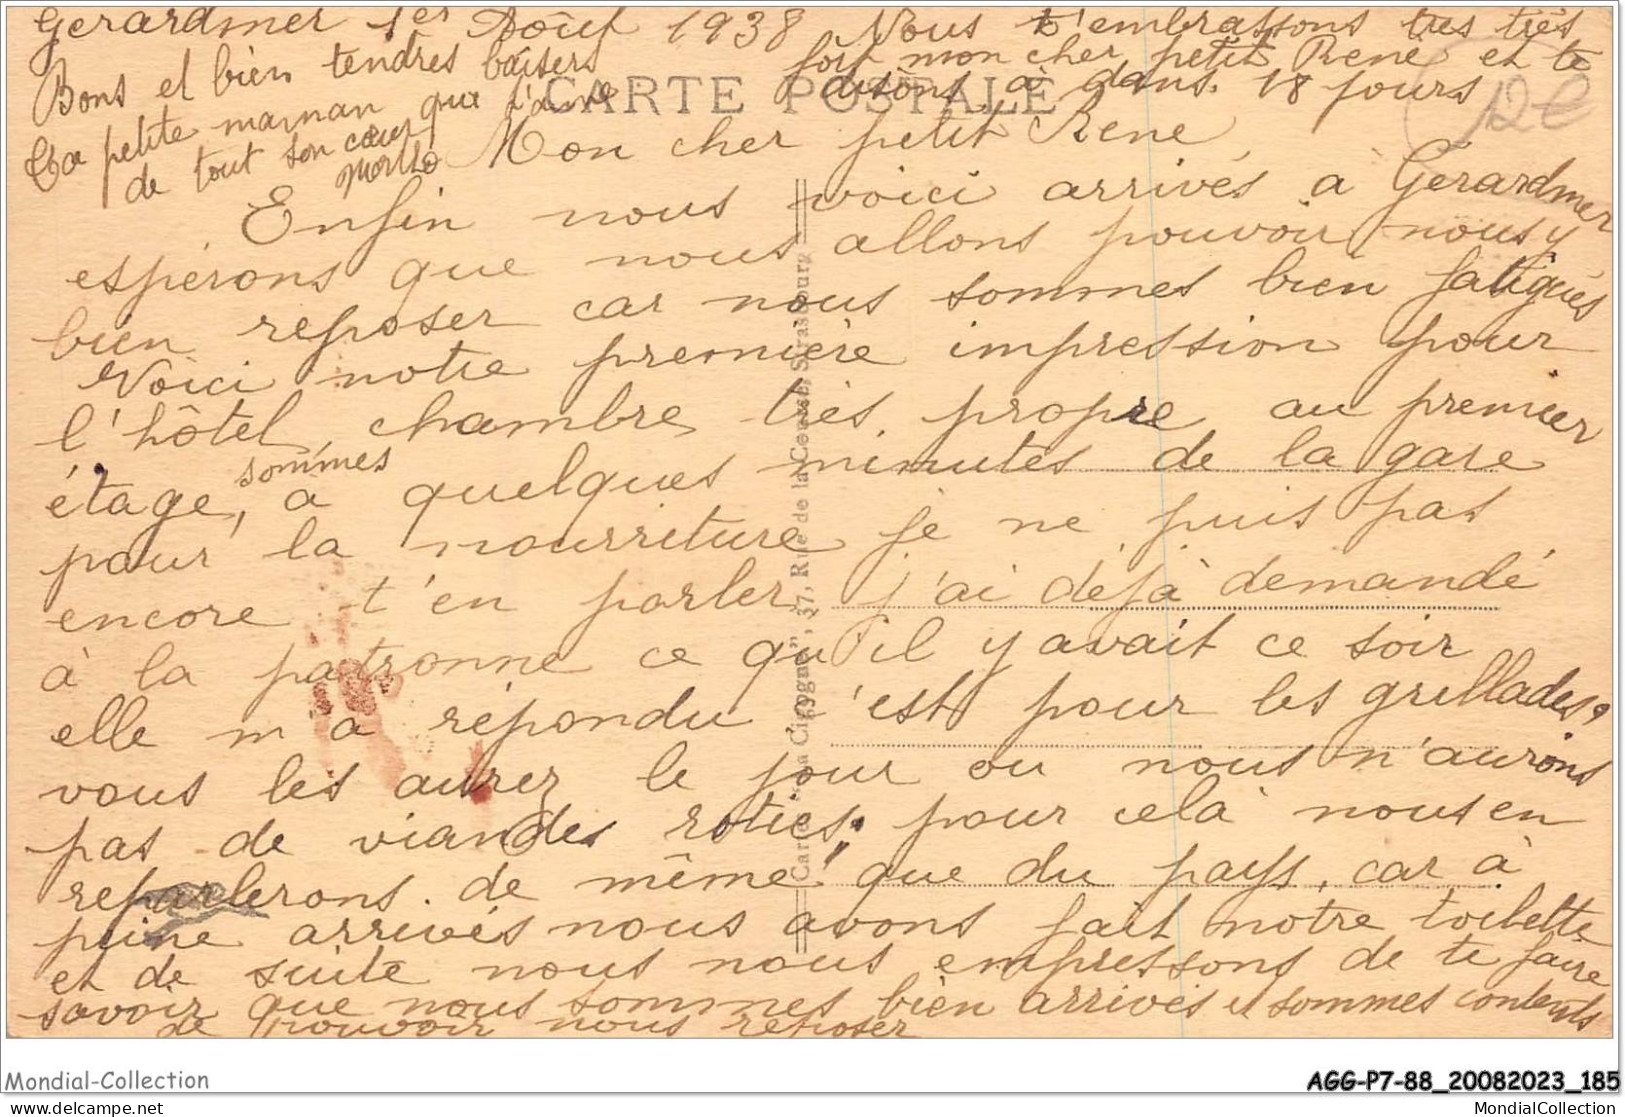 Gerardmer 1er Août 1938
Nous t'embrassons tres très
fort mon cher petit Rene et te
disons à dans. 18 jours
Bons et bien tendres baisers
Ta petite maman qui t'aime
de tout son cœur
CARTE POSTALE
12€
Mon cher petit Rene,
Enfin nous voici arrivés à Gerardmer
espérons que nous allons pouvoir nous y
bien reposer car nous sommes bien fatigués
Voici notre première impression pour
l'hôtel, chambre très propre au premier
étage, sommes à quelques minutes de la gare
pour la nourriture je ne puis pas
encore t'en parler j'ai déjà demandé
à la patronne ce qu'il y avait ce soir
elle m'a répondu c'est pour les grillades,
vous les aurez le jour ou nous n'aurons
pas de viandes roties, pour celà nous en
reparlerons. de même que du pays, car à
peine arrivés nous avons fait notre toilette
et de suite nous nous empressons de te faire
savoir que nous sommes bien arrivés et sommes contents
de pouvoir nous reposer
Cartes "La Cigogne", 37, Rue de la Course, Strasbourg
Mondial-Collection
AGG-P7-88_20082023_185
delcampe.net
MondialCollection